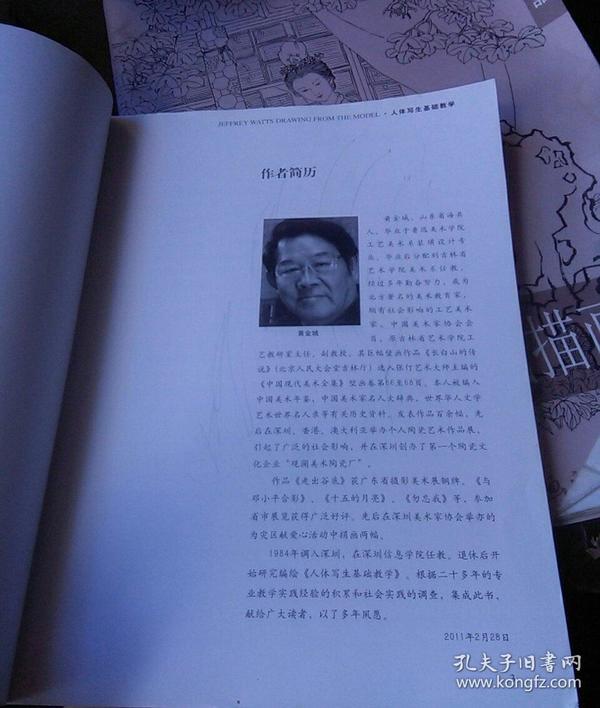 JEFFREY WATTS DRAWING FROM THE MODEL · 人体写生基础教学
作者简历
黄金城
黄金城，山东省海兵
人，毕业于鲁迅美术学院
工艺美术系装潢设计专
业。毕业后分配到吉林省
艺术学院美术系任教。
经过多年勤奋努力，成为
北方著名的美术教育家，
颇有社会影响的工艺美术
家，中国美术家协会会
员，原吉林省艺术学院工
艺教研室主任，副教授。其巨幅壁画作品《长白山的传
说》(北京人民大会堂吉林厅) 选入张仃艺术大师主编的
《中国现代美术全集》壁画卷第66至68页。本人被编入
中国美术年鉴，中国美术家名人大辞典，世界华人文学艺
术世界名人录等有关历史资料。发表作品百余幅。先
后在深圳、香港、澳大利亚举办个人陶瓷艺术作品展，
引起了广泛的社会影响，并在深圳创办了第一个陶瓷文
化企业“观澜美术陶瓷厂”。
作品《走出谷底》获广东省摄影美术展铜牌。《与
邓小平合影》、《十五的月亮》、《勿忘我》等，参加
省市展览获得广泛好评。先后在深圳美术家协会举办的
为灾区献爱心活动中捐画两幅。
1984年调入深圳，在深圳信息学院任教。退休后开
始研究编绘《人体写生基础教学》。根据二十多年的专
业教学实践经验的积累和社会实践的调查，集成此书，
献给广大读者，以了多年夙愿。
2011年2月28日
描画
孔夫子旧书网
www.kongfz.com